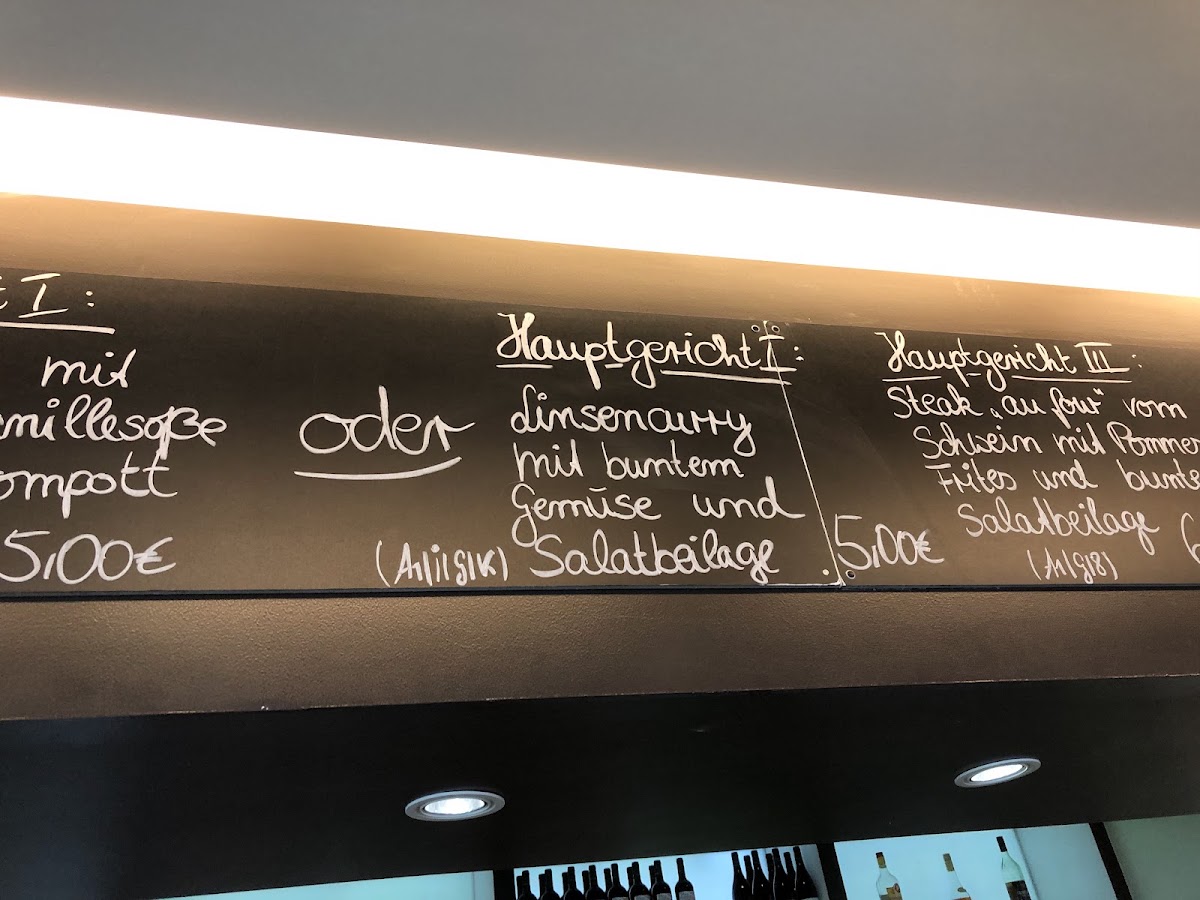 t I :
mit
nillesoße
ompott
5,00€
oder
Hauptgericht I :
Linsencurry
mit buntem
Gemüse und
Salatbeilage
5,00€
Hauptgericht III :
Steak „au four" vom
Schwein mit Pommes
Frites und bunte
Salatbeilage